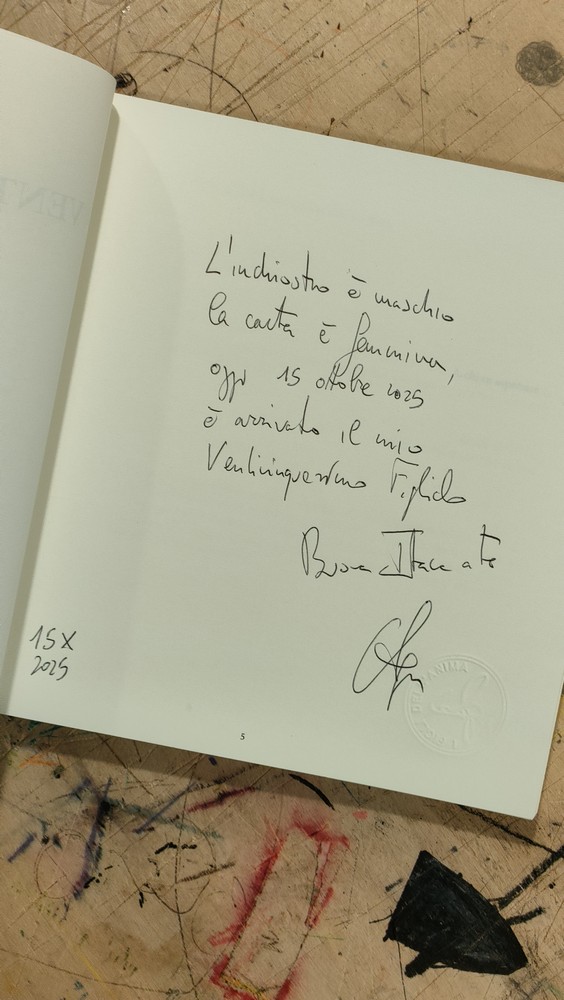 VENT
L'inchiostro è maschio
la carta è femmina,
oggi 15 ottobre 2025
è arrivato il mio
Venticinquesimo Figlio
Buona Itaca a te
15 X
2025
ANIMA
5